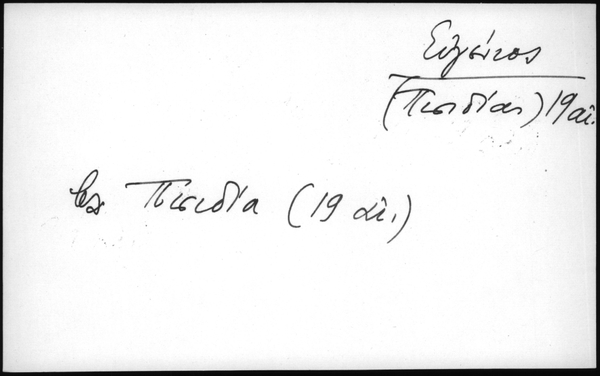 Εὐγένιος
(Πισιδίας) 19 αἰ.
βλ. Πισιδία (19 αἰ.)